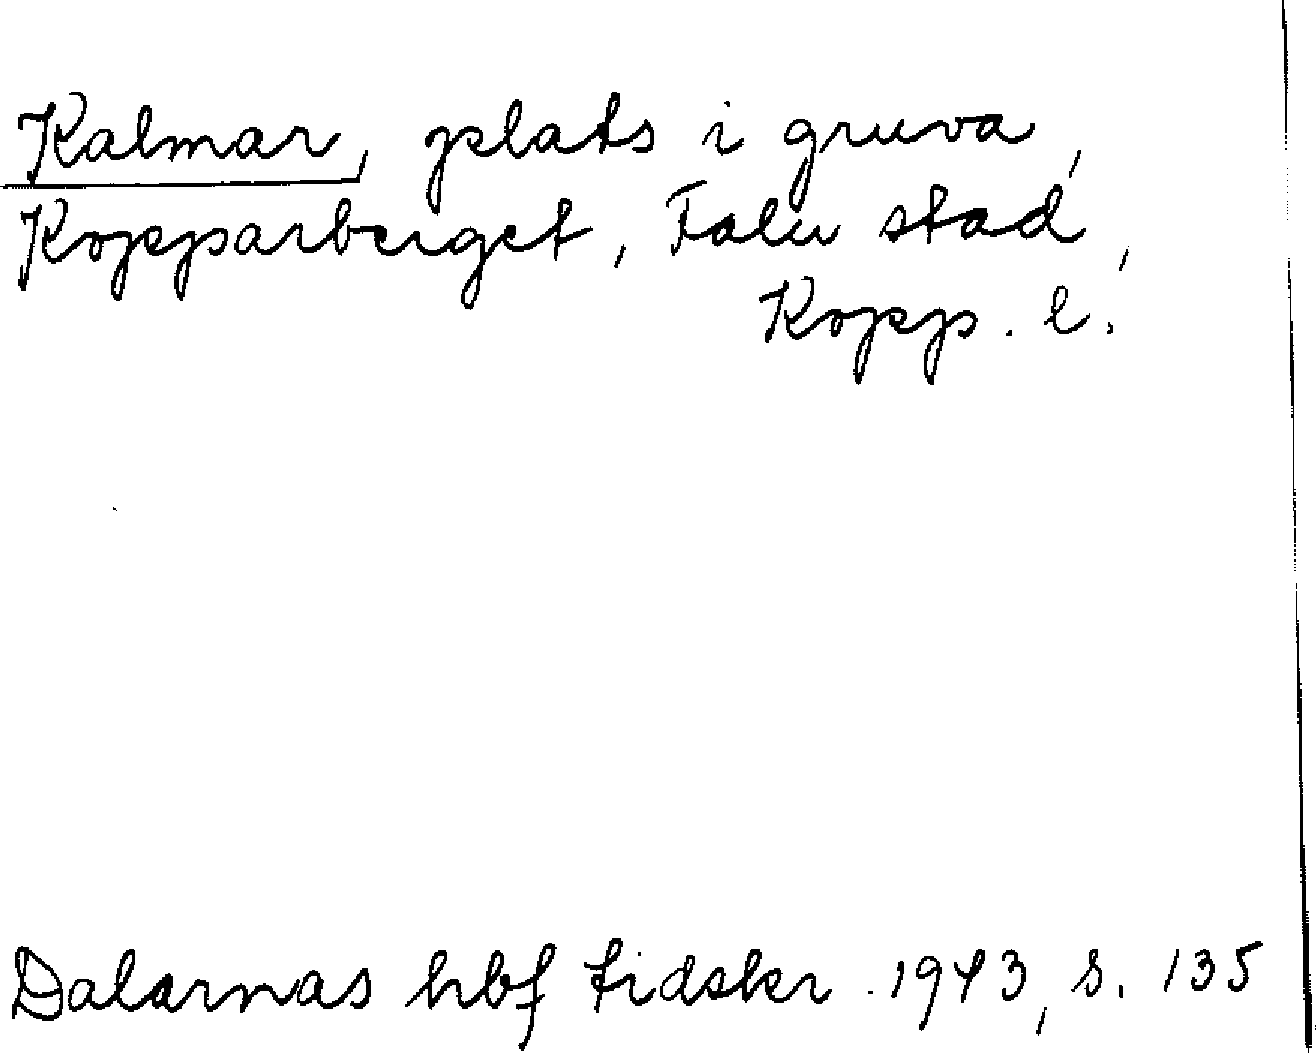 Kalmar, plats i gruva,
Kopparberget, Falu stad,
Kopp. l.
Dalarnas hbf tidskr. 1943, s. 135